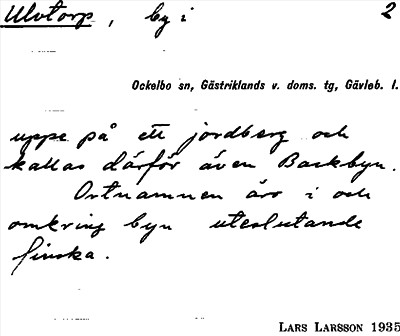 Ulvtorp, by i 2
Ockelbo sn, Gästriklands v. doms. tg, Gävleb. l.
uppe på ett jordberg och
kallas därför även Backbyn.
Ortnamnen äro i och
omkring byn uteslutande
finska.
LARS LARSSON 1935